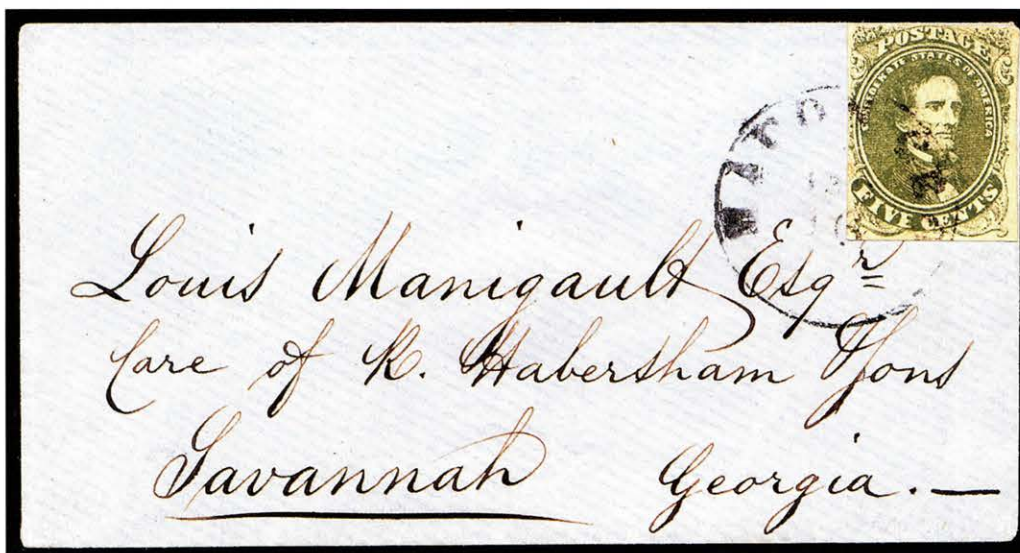 POSTAGE
CONFEDERATE STATES OF AMERICA
FIVE CENTS
Louis Manigault Esqr
Care of R. Habersham & Sons
Savannah Georgia. —